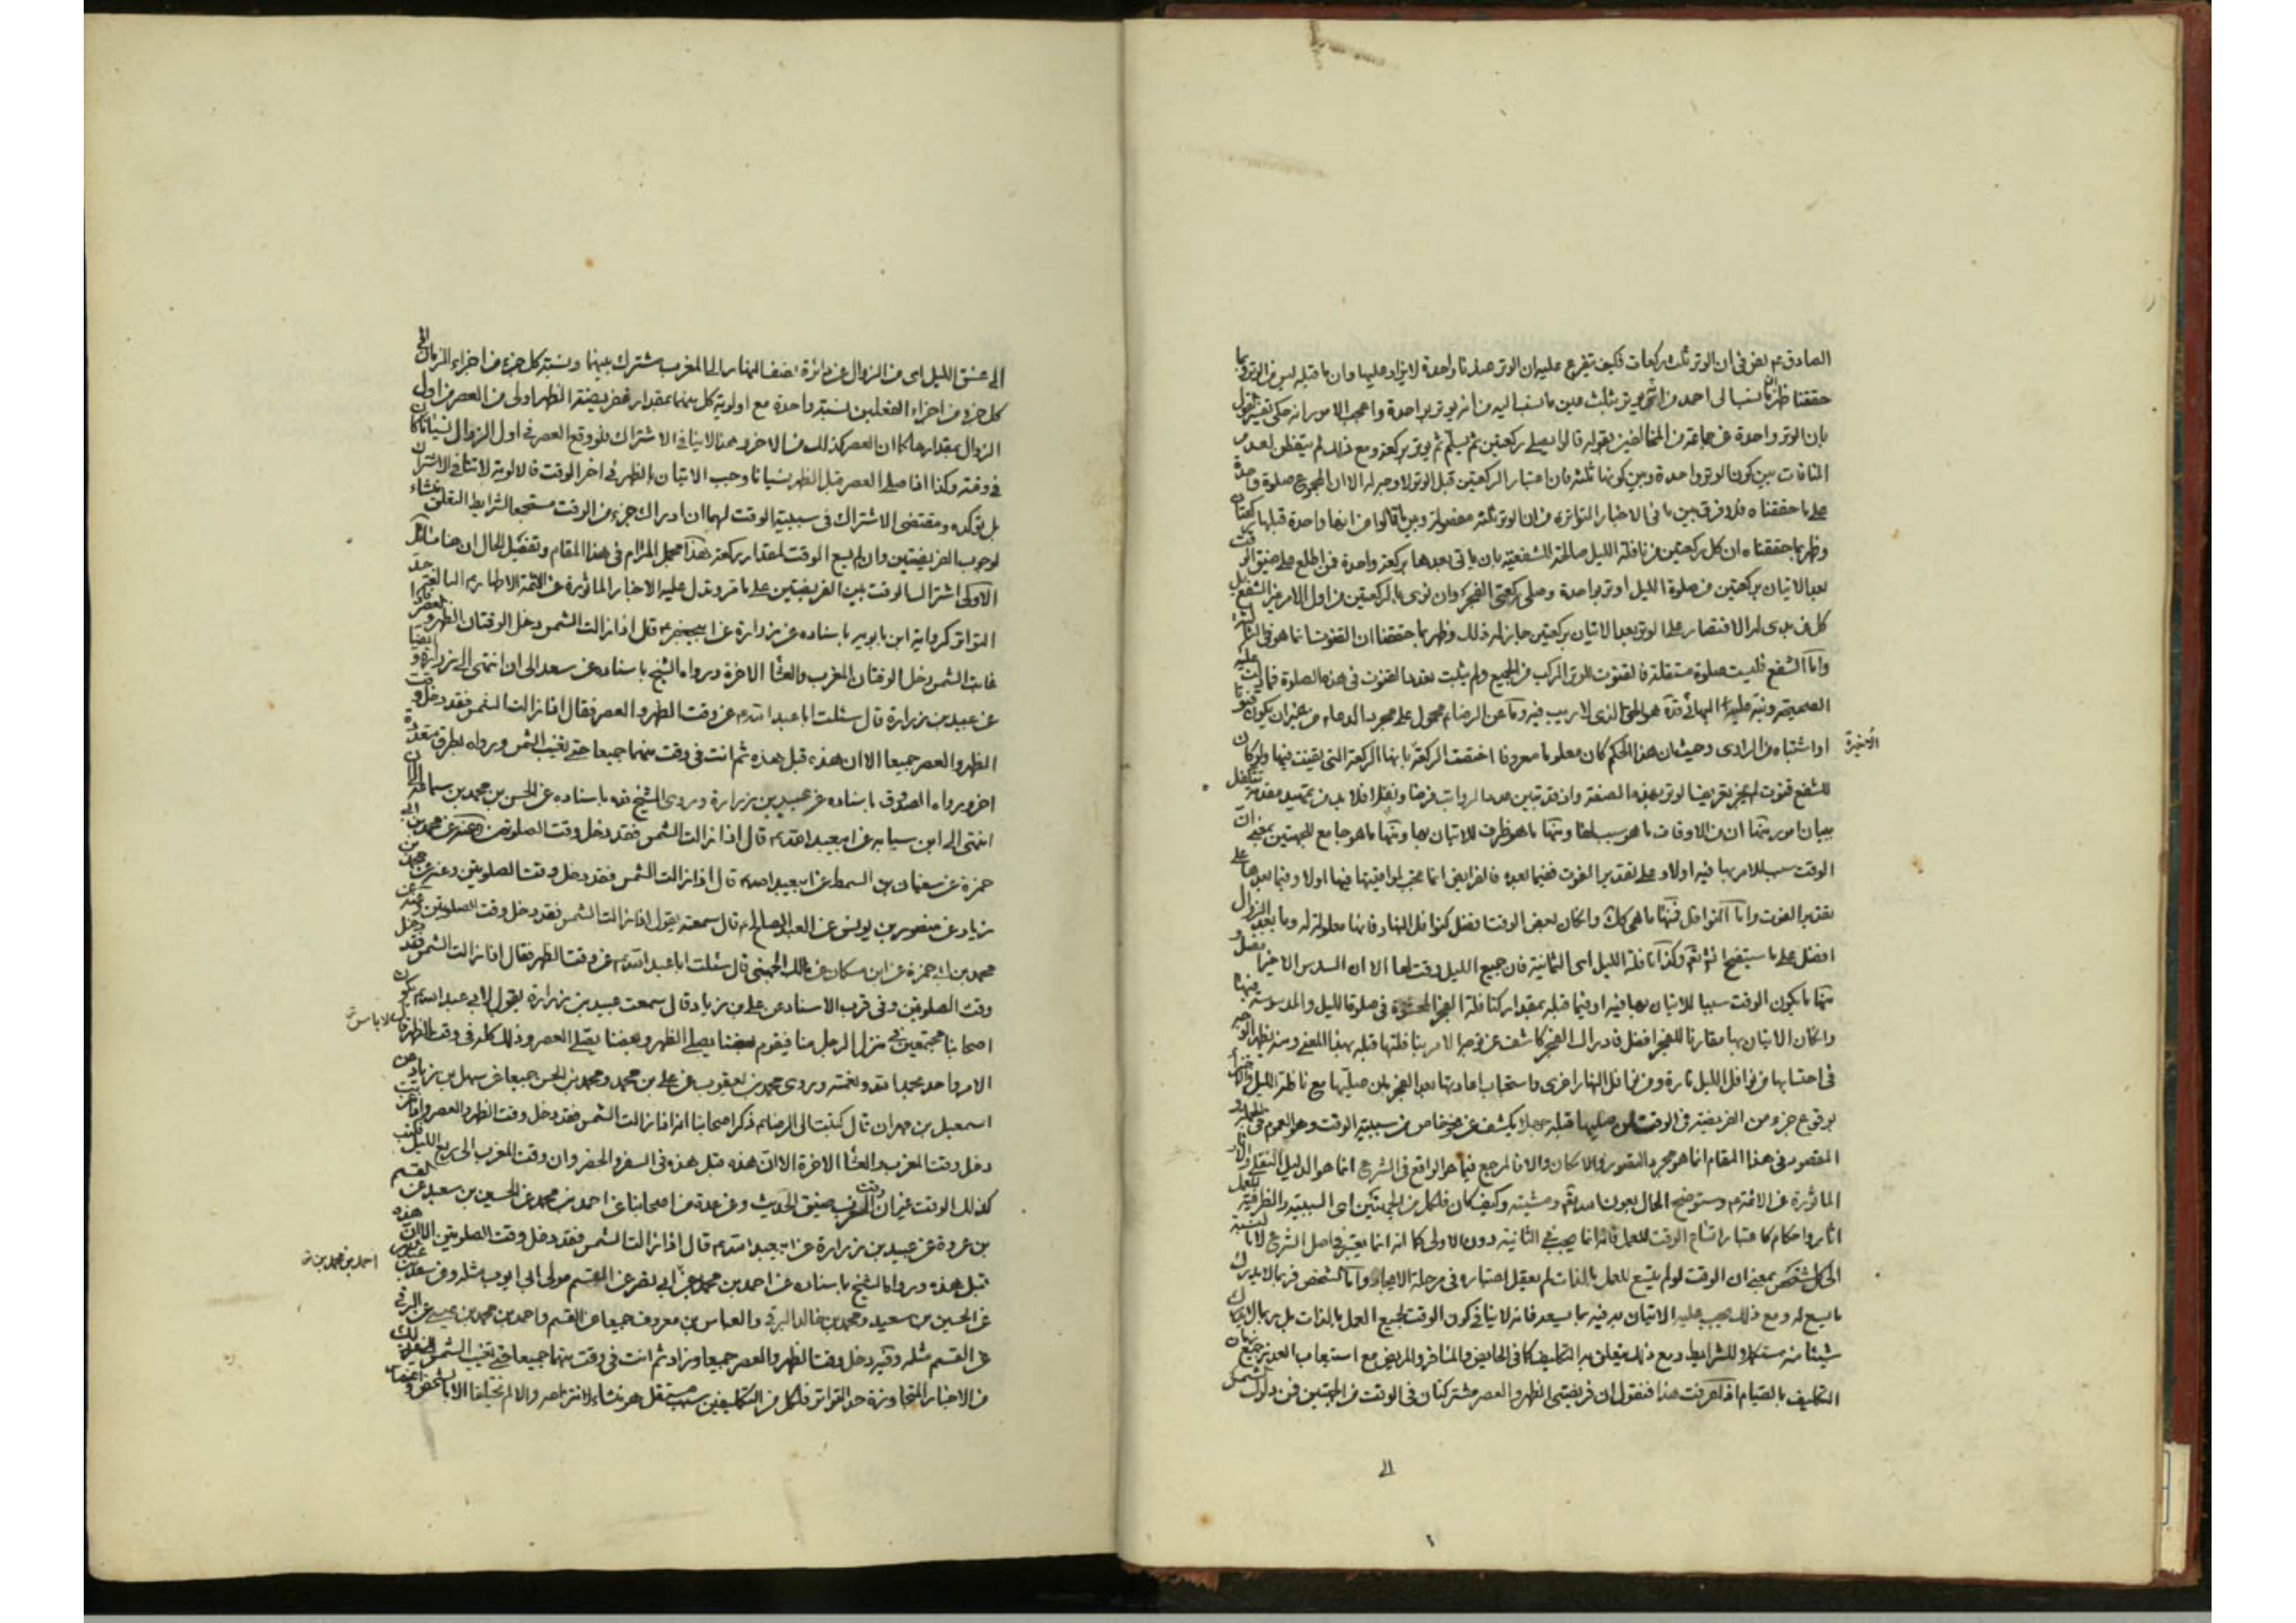 الصادق ع نص فى ان الوتر ثلث ركعات فكيف يتفرع عليه ان الوتر صلوة واحدة لا يزاد عليها وان ما قبله ليس من الوتر وبما
حققنا ظهر ما نسب الى احمد من انه يوتر بثلث مما نسب اليه من انه يوتر بواحدة واعجب الامور انه حكى تفسير القول
بان الوتر واحدة عن جماعة من المخالفين بقوله قالوا يصلى ركعتين ثم يسلم ثم يوتر بركعة ومع ذلك لم يتفطن لعدم
المنافات بين كون الوتر واحدة وبين كونها ثلثة فان اعتبار الركعتين قبل الوتر لا وجه له الا ان المجموع صلوة واحدة
على ما حققناه فلا فرق بين ما فى الاخبار المتواترة من ان الوتر ثلثة مفصولة وبين ما قالوا من انها واحدة قبلها ركعتان
وظهر بما حققناه ان كل ركعتين من نافلة الليل صالحة للشفعية بان ياتى بعدها بركعة واحدة فمن اطلع على ضيق الوقت
بعد الاتيان بركعتين من صلوة الليل اوتر بواحدة وصلى ركعتى الفجر وان نوى بالركعتين من اول الامر غير الشفع بل
كل من بدى له الاقتصار على الوتر بعد الاتيان بركعتين جاز له ذلك وظهر بما حققنا ان القنوت انما هو فى الثالثة
واما الشفع فليست صلوة مستقلة فالقنوت للوتر المركب من الجميع ولم يثبت تعدد القنوت فى هذه الصلوة فما
الصحيحة ونبه عليه البهائى قده هو الحق الذى لا ريب فيه وما عن الرضا ع محمول على مجرد الدعاء من غير ان يكون قنوتا
او اشتباه من الراوى وحيث ان هذا الحكم كان معلوما معروفا اختصت الركعة بانها الركعة التى يقنت فيها ولو كان
الأخيرة
للشفع قنوت لم يجز تعريفنا لوتر بهذه الصفة واذ قد تبين عدد الرواتب فرضا ونفلا فلا بد من تمهيد مقدمة تتكفل
ببيان امور منها ان من الاوقات ما هو سبب لها ومنها ما هو ظرف للاتيان بها ومنها ما هو جامع للجهتين بمعنى ان
الوقت سبب للامر بها فيه اولا وعلى تقدير الفوت ففيما بعده فالفرايض انما تجب لمواقيتها فيها اولا وفيما بعدها على
تقدير الفوت واما النوافل فمنها ما هى كك وان كان بعض الوقت افضل كنوافل النهار فانها معلولة له وما بعد الزوال
افضل على ما سيتضح انشاء الله تع وكذا نافلة الليل اى الثمانية فان جميع الليل وقت لها الا ان السدس الاخير افضل و
منها ما يكون الوقت سببا للاتيان بها فيه او فيما قبله بمقدار كنافلة الفجر المحشوة فى صلوة الليل والمدسوسة فيها
وان كان الاتيان بها مقارنا للفجر افضل فادراك الفجر كاشف عن توجه الامر بنافلتها قبله بهذا المعنى ومنه يظهر الوجه
فى احتسابها من نوافل الليل تارة ومن نوافل النهار اخرى واستحباب اعادتها بعد الفجر لمن صليها مع نافلة الليل
بوقوع جزء من الفريضة فى الوقت لمن صليها قبله جهلا يكشف عن نحو خاص من سببية الوقت وهو العموم فى
المقصود فى هذا المقام انما هو مجرد التصوير والامكان والا فالمرجع فيما هو الواقع فى الشرع انما هو الدليل النقلى والاثار
الماثورة عن الائمة ع وستوضح الحال بعون الله تع ومشيته وكيف كان فلكل من الجهتين اى السببية والظرفية
اثار واحكام كاعتبار اتساع الوقت للعمل فانه انما يجب فى الثانية دون الاولى كما انه انما يعتبر فى اصل الشرع لا بالنسبة
الى كل شخص بمعنى ان الوقت لو لم يتسع للعمل بالذات لم يعقل اعتباره فى مرحلة الايجاد واما الشخص فربما لا يدرك
ما يسع له ومع ذلك يجب عليه الاتيان به فيه بما يسعه فانه لا ينافى كون الوقت لجميع العمل بالذات بل ربما لا يدرك
شيئا منه مستكملا للشرايط ومع ذلك يتعلق به التكليف كما فى الحايض والمسافر والمريض مع استيعاب العذر جميع زمان
التكليف بالصيام اذا عرفت هذا فنقول ان فريضتى الظهر والعصر مشتركتان فى الوقت من الجهتين فمن دلوك الشمس
الى
الى غسق الليل اى من الزوال عن دائرة نصف النهار الى المغرب مشترك بينهما ونسبة كل جزء من اجزاء الزمان الى
كل جزء من اجزاء الفعلين نسبة واحدة مع اولوية كل منهما بمقداره ففريضة الظهر اولى من العصر من اول
الزوال بمقدارها كما ان العصر كذلك من الاخر وهذا لا ينافى الاشتراك فلو وقع العصر فى اول الزوال نسيانا كان
فى وقته وكذا اذا صلى العصر قبل الظهر نسيانا وجب الاتيان بالظهر فى اخر الوقت فالاولوية لا تنافى الاشتراك
بل يؤكده ومقتضى الاشتراك فى سببية الوقت لهما ان ادراك جزء من الوقت مستجمعا لشرايط التعلق منشاء
لوجوب الفريضتين وان لم يسع الوقت لمقدار ركعة هذا مجمل المرام فى هذا المقام وتفصيل الحال ان هنا مسائل
الاولى اشتراك الوقت بين الفريضتين على ما مر وتدل عليه الاخبار الماثورة عن الائمة الاطهار ع البالغة حد
التواتر كرواية ابن بابويه باسناده عن زرارة عن ابيجعفر ع قال اذا زالت الشمس دخل الوقتان الظهر والعصر فاذا
غابت الشمس دخل الوقتان المغرب والعشاء الاخرة ورواه الشيخ باسناده عن سعد الى ان انتهى الى زرارة و ايضا
عن عبيد بن زرارة قال سئلت ابا عبد الله ع عن وقت الظهر والعصر فقال اذا زالت الشمس فقد دخل وقت
الظهر والعصر جميعا الا ان هذه قبل هذه ثم انت فى وقت منهما جميعا حتى تغيب الشمس ورواه بطرق متعددة
اخر ورواه الصدوق باسناده عن عبيد بن زرارة وروى الشيخ قده باسناده عن الحسن بن محمد بن سماعة الى ان
انتهى الى ابن سيابه عن ابيعبد الله ع قال اذا زالت الشمس فقد دخل وقت الصلوتين وعنه عن محمد بن ابى
حمزة عن سفيان بن السمط عن ابيعبد الله ع قال اذا زالت الشمس فقد دخل وقت الصلوتين وعنه عن محمد بن
زياد عن منصور بن يونس عن العبد الصالح ع قال سمعته يقول اذا زالت الشمس فقد دخل وقت الصلوتين وعنه عن
محمد بن ابى حمزة عن ابن مسكان عن مالك الجهنى قال سئلت ابا عبد الله ع عن وقت الظهر فقال اذا زالت الشمس فقد دخل
وقت الصلوتين وفى قرب الاسناد عن على بن زياد قال سمعت عبيد بن زرارة يقول لابى عبد الله ع يكون
اصحابنا مجتمعين فى منزل الرجل منا فيقوم بعضنا يصلى الظهر وبعضنا يصلى العصر وذلك كله فى وقت الظهر قال
لا باس
الامر واحد بحمد الله ونعمته وروى محمد بن يعقوب عن على بن محمد ومحمد بن الحسن جميعا عن سهل بن زياد عن
اسمعيل بن مهران قال كتبت الى الرضا ع ذكر اصحابنا انه اذا زالت الشمس فقد دخل وقت الظهر والعصر واذا غربت
دخل وقت المغرب والعشاء الاخرة الا ان هذه قبل هذه فى السفر والحضر وان وقت المغرب الى ربع الليل فكتب
كذلك الوقت غير ان وقت المغرب ضيق الحديث وعن عدة من اصحابنا عن احمد بن محمد عن الحسين بن سعيد عن القسم
بن عروة عن عبيد بن زرارة عن ابيعبد الله ع قال اذا زالت الشمس فقد دخل وقت الصلوتين الا ان هذه
احمد بن محمد بن
قبل هذه ورواه الشيخ باسناده عن احمد بن محمد بن ابى نصر عن القسم مولى ابى ايوب مثله وعن سعد بن
عن الحسين بن سعيد ومحمد بن خالد البرقى والعباس بن معروف جميعا عن القسم واحمد بن محمد بن عيسى عن البرقى
عن القسم مثله وفيه دخل وقت الظهر والعصر جميعا وزاد ثم انت فى وقت منهما جميعا حتى تغيب الشمس الى غير ذلك
من الاخبار المتجاوزة حد التواتر فلكل من التكليفين سبب مستقل هو منشاء لانتزاعه والا لم يختلفا الا بالشخص و